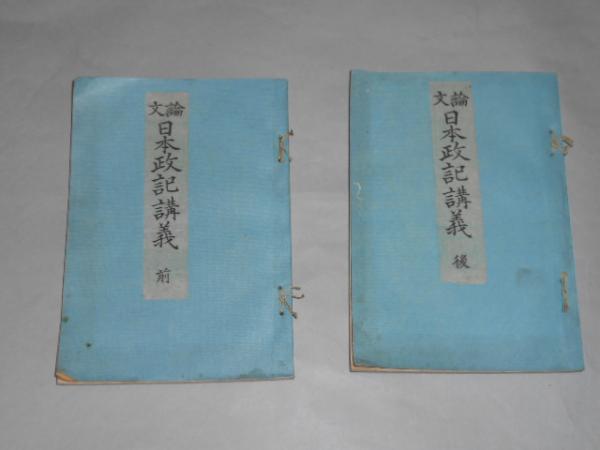 論文
日本政記講義
前
論文
日本政記講義
後